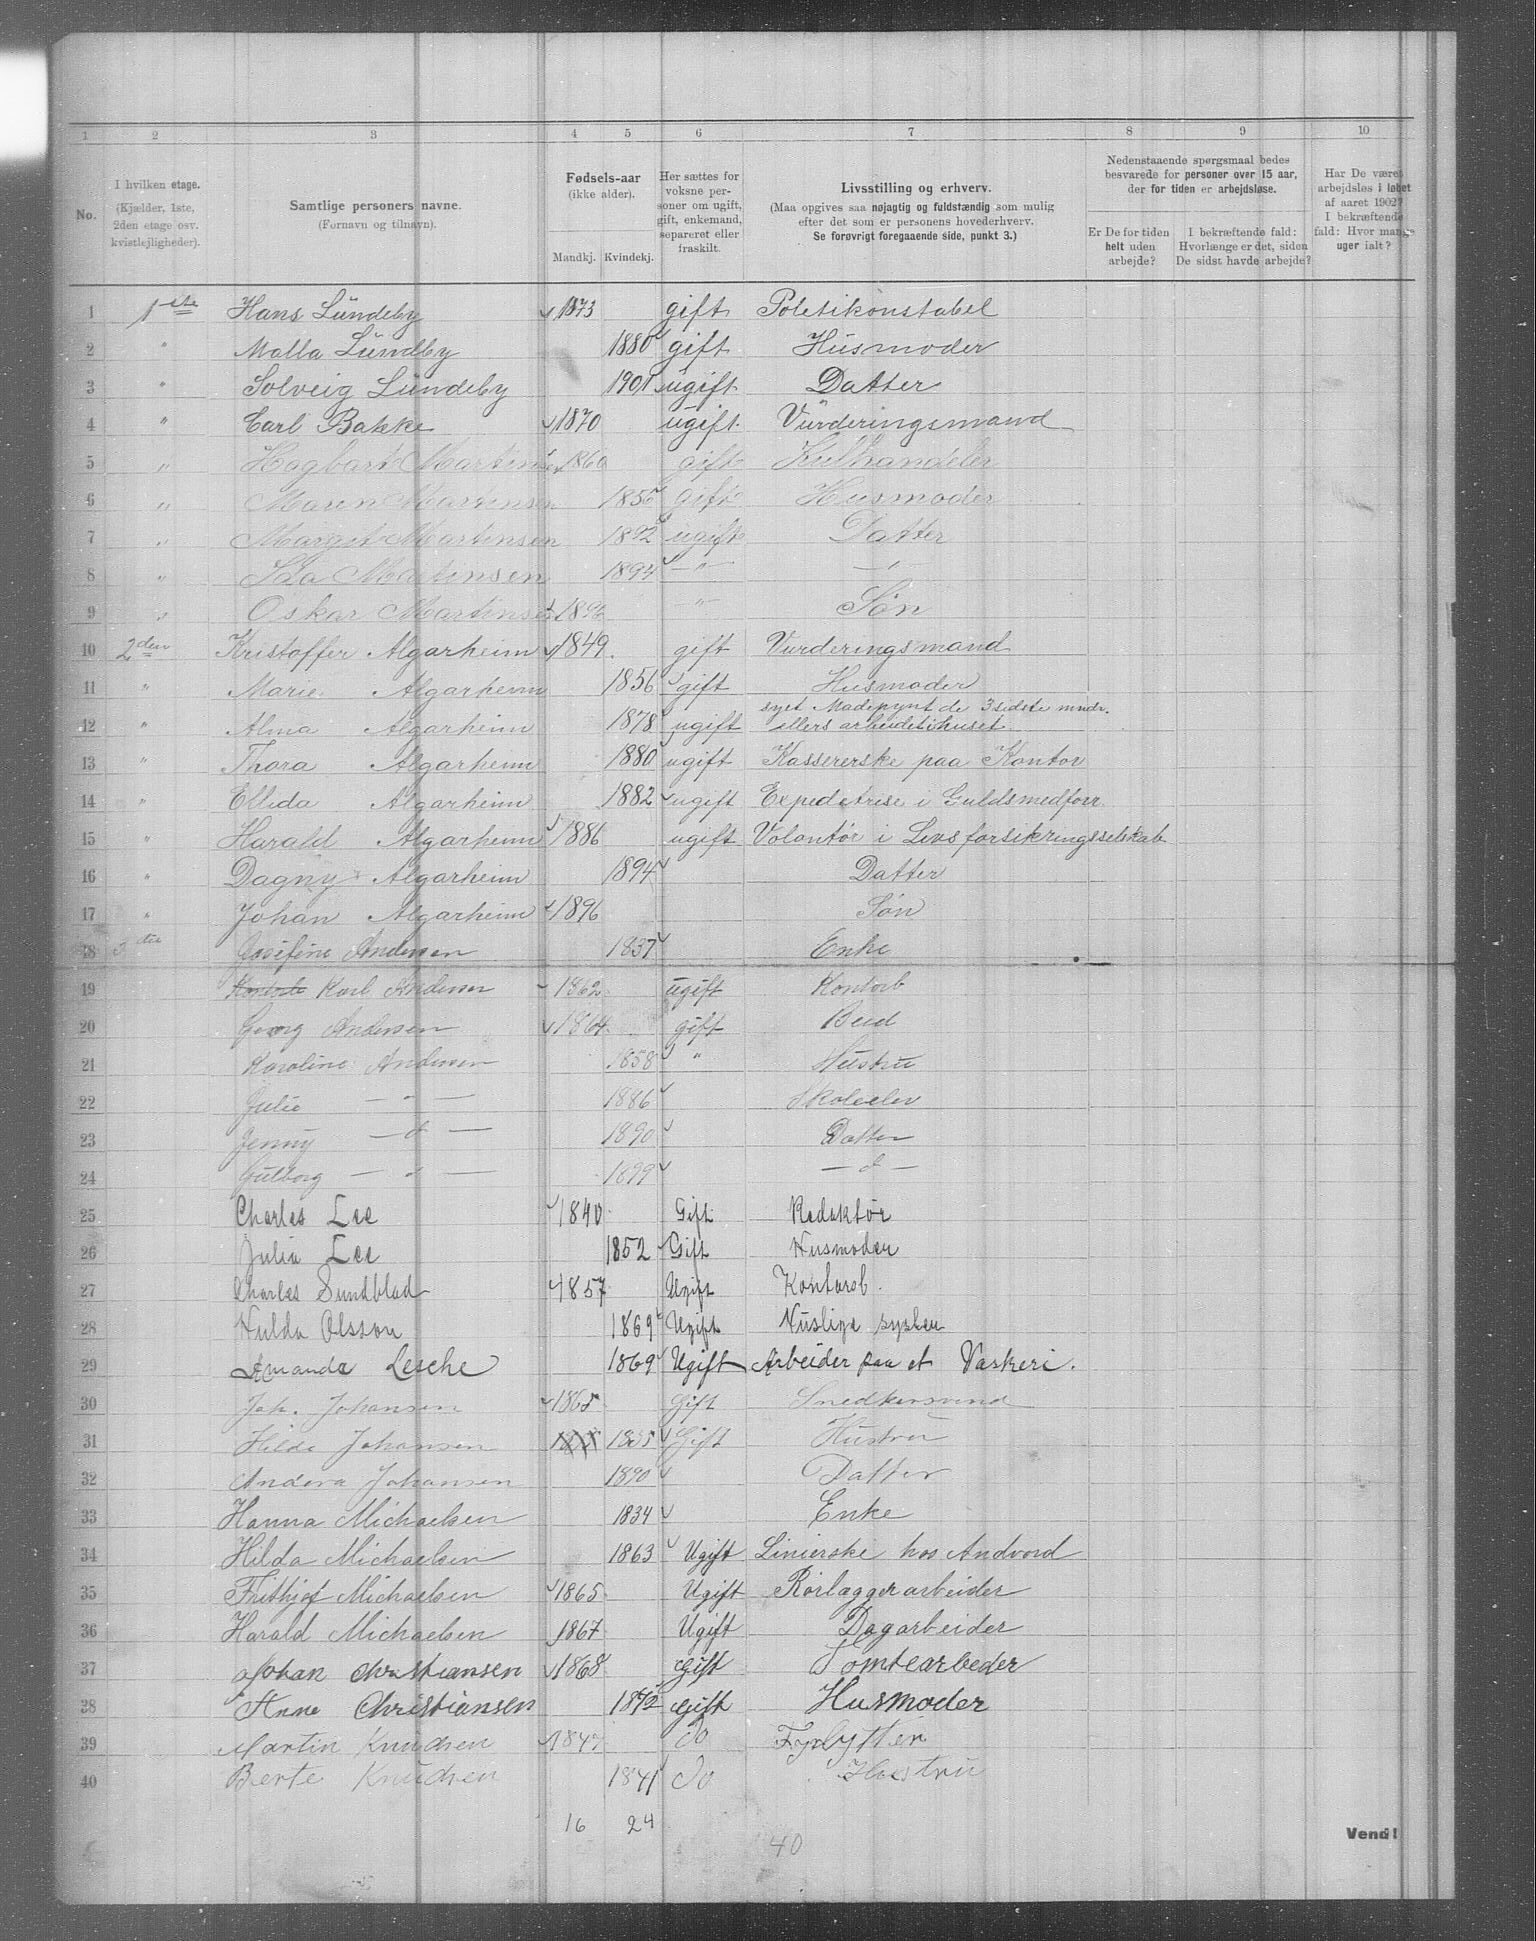 1 2 3 4 5 6 7 8 9 10
No.
I hvilken etage.
(Kjælder, 1ste,
2den etage osv.
kvistlejligheder).
Samtlige personers navne.
(Fornavn og tilnavn).
Fødsels-aar
(ikke alder).
Mandkj. Kvindekj.
Her sættes for
voksne per-
soner om ugift,
gift, enkemand,
separeret eller
fraskilt.
Livsstilling og erhverv.
(Maa opgives saa nøjagtig og fuldstændig som mulig
efter det som er personens hovederhverv.
Se forøvrigt foregaaende side, punkt 3.)
Nedenstaaende spørgsmaal bedes
besvarede for personer over 15 aar,
der for tiden er arbejdsløse.
Er De for tiden
helt uden
arbejde?
I bekræftende fald:
Hvorlænge er det, siden
De sidst havde arbejde?
Har De været
arbejdsløs i løbet
af aaret 1902?
I bekræftende
fald: Hvor mange
uger ialt?
1 1ste Hans Lundeby 1873 gift Politikonstabel
2 " Malla Lundby 1880 gift Husmoder
3 " Solveig Lundeby 1901 ugift Datter
4 " Carl Bakke 1870 ugift Vurderingsmand
5 " Hagbart Martinsen 1860 gift Kulhandeler
6 " Maren Martinsen 1856 gift Husmoder
7 " Margit Martinsen 1892 ugift Datter
8 " Ida Martinsen 1894 — " — — " —
9 " Oskar Martinsen 1896 — " — Søn
10 2den Kristoffer Algarheim 1849 gift Vurderingsmand
11 " Marie Algarheim 1856 gift Husmoder
12 " Alma Algarheim 1878 ugift syet Madepynt de 3 sidste mndr.
ellers arbeidet i huset
13 " Thora Algarheim 1880 ugift Kassererske paa Kontor
14 " Ellida Algarheim 1882 ugift Expeditrise i Guldsmedforr.
15 " Harald Algarheim 1886 ugift Volontør i Livsforsikringsselskab
16 " Dagny Algarheim 1894 Datter
17 " Johan Algarheim 1896 Søn
18 3die Josefine Andersen 1837 Enke
19 Karl Andersen 1862 ugift Kontorb
20 Georg Andersen 1864 gift Bud
21 Karoline Andersen 1858 " Hustru
22 Julie — " — 1886 Skoleelev
23 Jenny — d — 1890 Datter
24 Gutborg — " — 1899 — d —
25 Charles Lee 1840 Gift Redaktør
26 Julia Lee 1852 Gift Husmoder
27 Charles Sundblad 1857 Ugift Kontorb.
28 Hulda Olsson 1869 Ugift Huslige sysler
29 Amanda Lesche 1869 Ugift Arbeider paa et Vaskeri.
30 Joh. Johansen 1865 Gift Snedkersvend
31 Hilda Johansen 1835 Gift Hustru
32 Andora Johansen 1890 Datter
33 Hanna Michaelsen 1834 Enke
34 Hilda Michaelsen 1863 Ugift Linierske hos Andvord
35 Frithjof Michaelsen 1865 Ugift Rørlæggerarbeider
36 Harald Michaelsen 1867 Ugift Dagarbeider
37 Johan Christiansen 1868 gift Tomtearbeder
38 Anne Christiansen 1872 gift Husmoder
39 Martin Knudsen 1847 do
40 Berte Knudsen 1841 do Hustru
16 24
40
Vend!